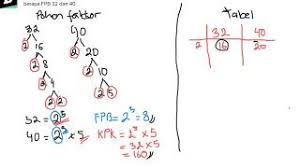 berapa FPB 32 dan 40
Pohon faktor
32
2 16
2 8
2 4
2 2
40
2 20
2 10
2 5
32 = 2⁵
40 = 2³ × 5
FPB = 2³ = 8
KPK = 2⁵ × 5
= 32 × 5
= 160
Tabel
32 40
2 16 20